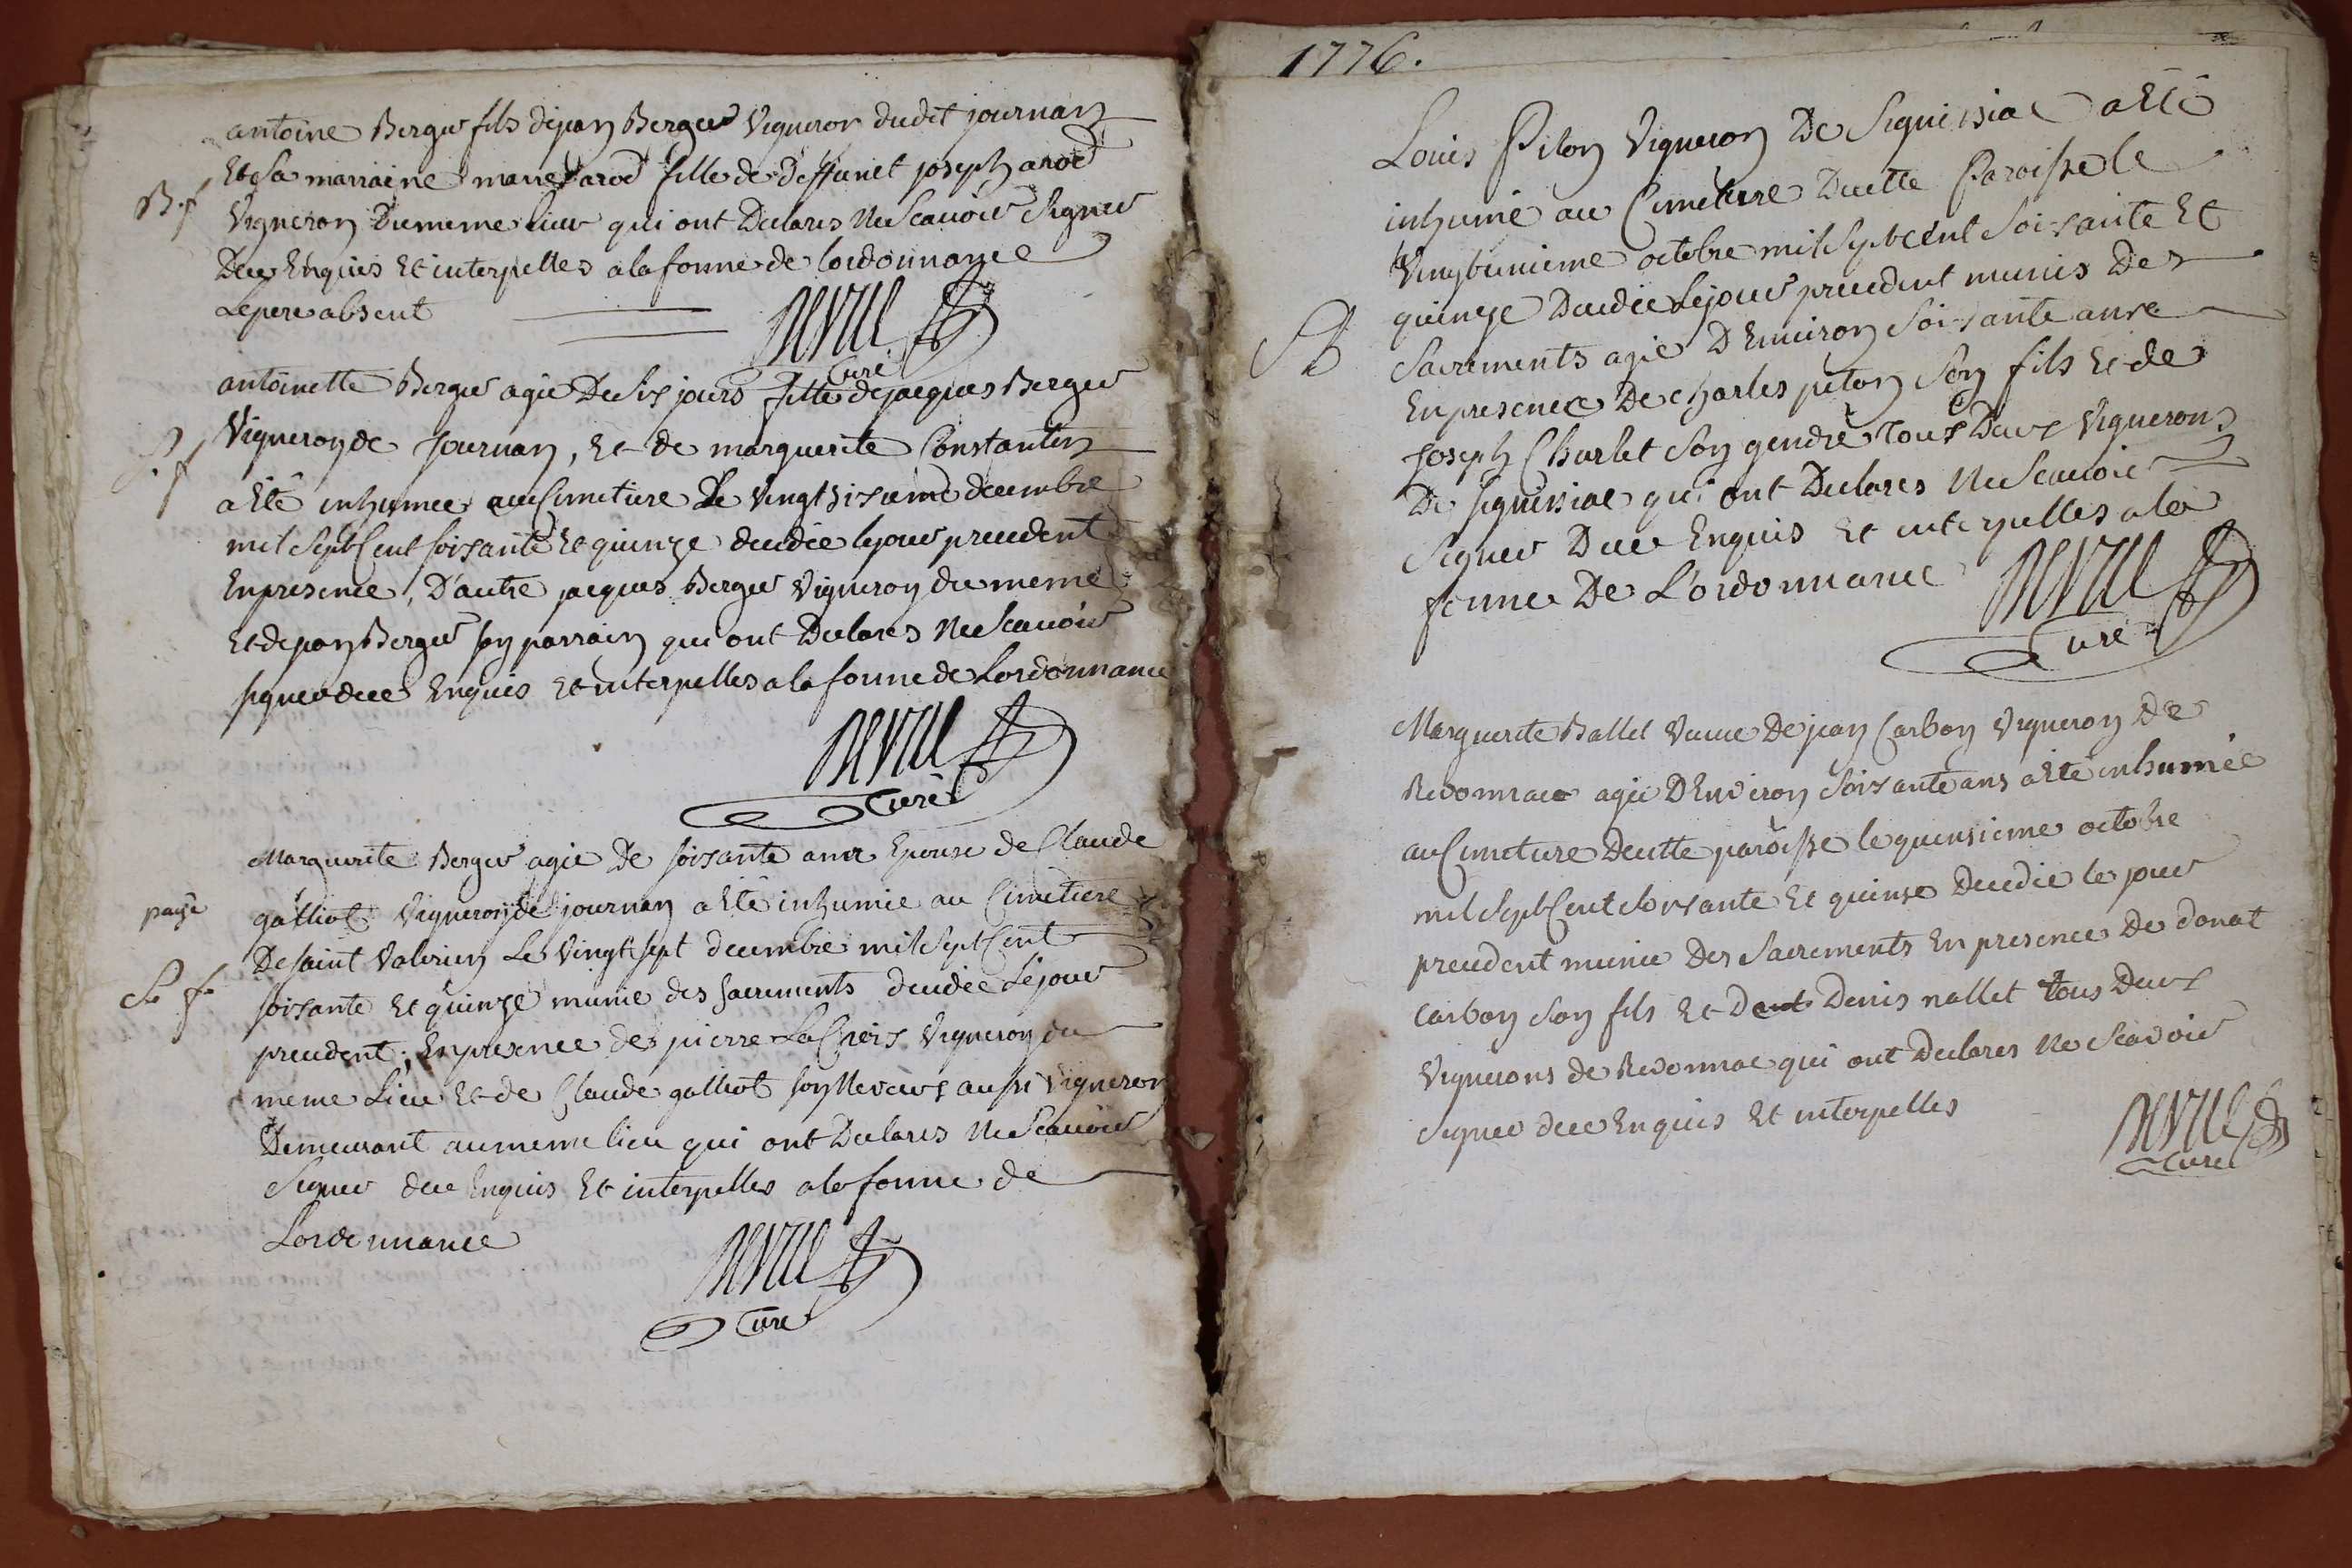 antoine Berger fils de jean Berger Vigneron dudit journan
Et Sa marraine marie arod fille de deffunct joseph arod
B. f
Vigneron Du meme lieu qui ont Declares Ne Scauoir Signer
De ce Enquis Et interpelles a la forme de lordonnance
Le pere absent
Neyrie
Curé
antoinette Berger agée De Six jours fille de jacques Berger
S. f
Vigneron de journan, Et de marguerite Constantin
a Eté inhumee au Cimetiere Le Vingt sixieme decembre
mil Sept Cent soixante Et quinze decedée le jour precedent
En presence, D'autre jacques Berger Vigneron du meme
Et de jean Berger son parrain qui ont Declares Ne Scauoir
signer de ce Enquis Et interpelles a la forme de Lordonnance
Neyrie
Curé
Marguerite Berger agée De soixante ans Epouse de Claude
paye
galliot Vigneron de journan a Eté inhumée au Cimetiere
De saint Valerien Le Vingt sept decembre mil Sept Cent
S. f.
soixante Et quinze munie des sacrements decedée Le jour
precedent, En presence de pierre La Croix Vigneron du
meme Lieu Et de Claude galliot son Neveux aussi Vigneron
Demeurant au meme lieu qui ont Declares Ne Scauoir
Signer de ce Enquis Et interpelles a la forme de
Lordonnance
Neyrie
Curé
1776.
Louis Piton Vigneron De Signissiac a Eté
inhumé au Cimetierre De cette Paroisse le
Vingt unieme octobre mil Sept Cent Soixante Et
quinze Decedé Le jour precedent munis Des
Sacrements agé D'Environ Soixante ans
En presence De charles piton Son fils Et de
joseph Charlet Son gendre Tous Deux Vignerons
De signissiac qui ont Declares Ne Scauoir
Signer De ce Enquis Et interpelles a la
forme De L'ordonnance
Neyrie
Curé
Marguerite Ballet Veuve De jean Carbon Vigneron De
Revonnac agée D'Environ Soixante ans a Eté inhumée
au Cimetiere De cette paroisse le quinsieme octobre
mil Sept Cent Soixante Et quinse Decedée le jour
precedent munie Des Sacrements En presence De donat
Carbon Son fils Et De Denis nallet Tous Deux
Vignerons de Revonnac qui ont Declares Ne Scavoir
Signer de ce Enquis Et interpelles
Neyrie
Curé